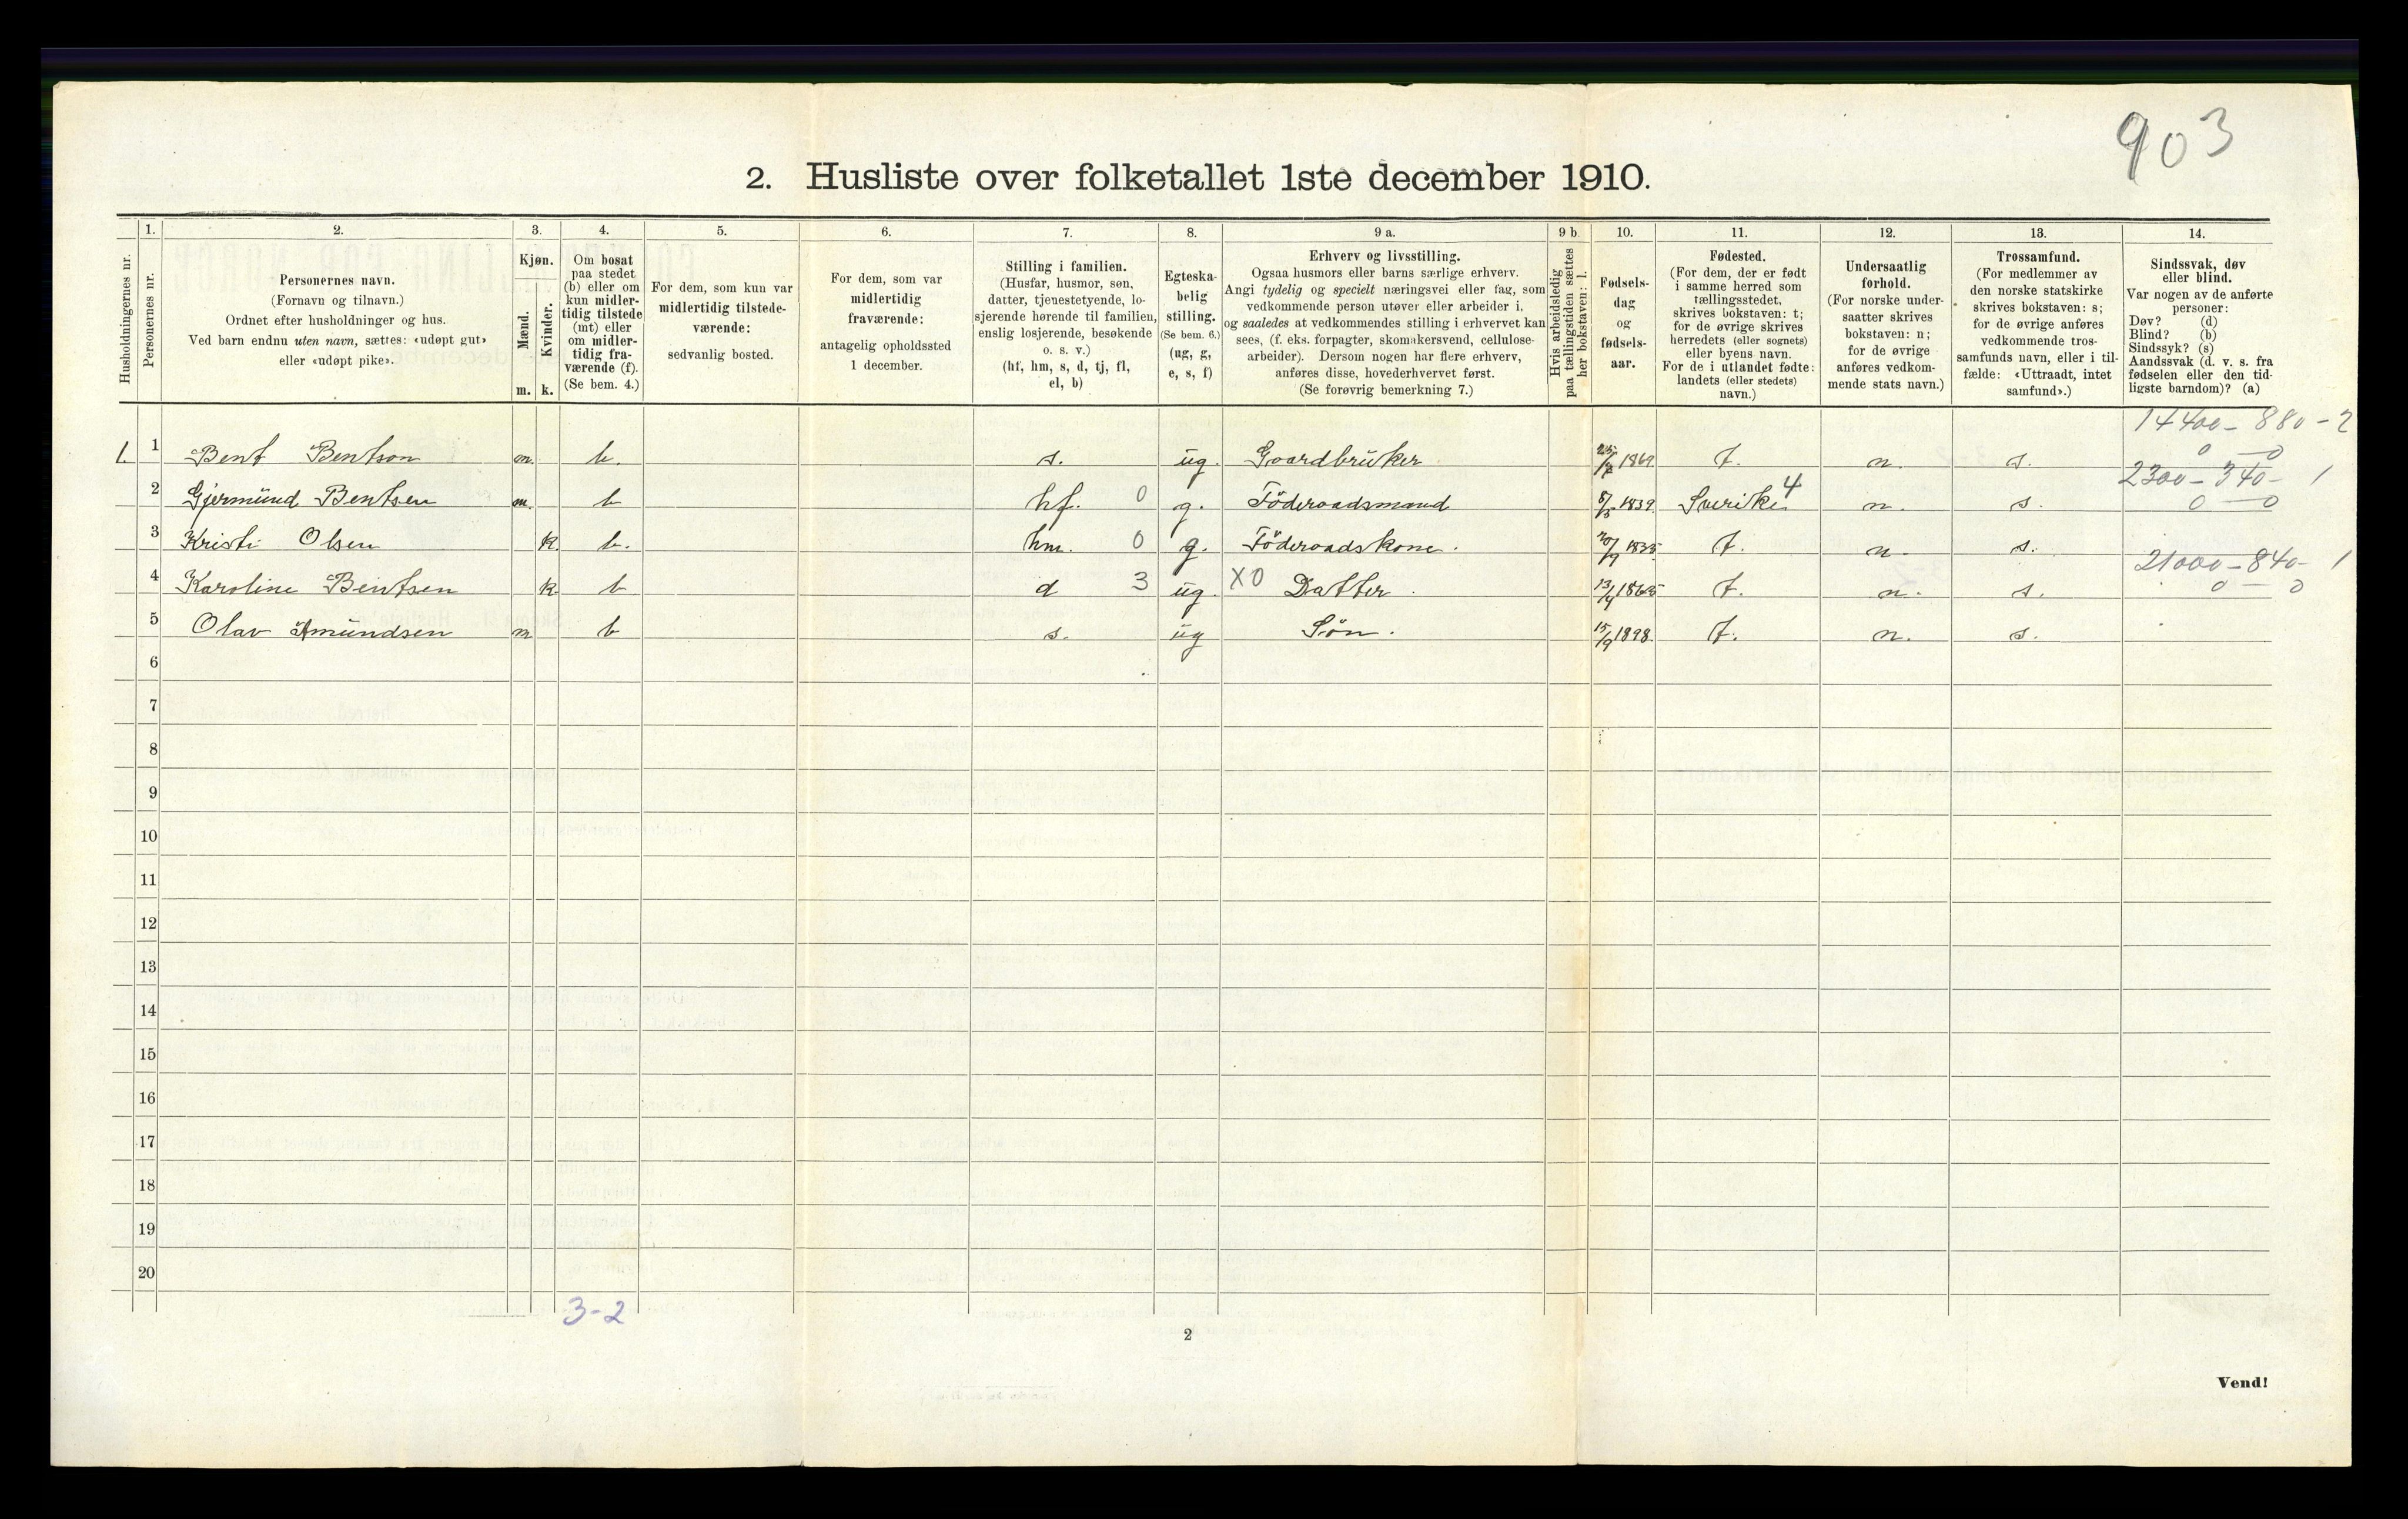 903
2. Husliste over folketallet 1ste december 1910.
Husholdningernes nr.
1.
Personernes nr.
2.
Personernes navn.
(Fornavn og tilnavn.)
Ordnet efter husholdninger og hus.
Ved barn endnu uten navn, sættes: «udøpt gut»
eller «udøpt pike».
3.
Kjøn.
Mænd.
Kvinder.
m. k.
4.
Om bosat
paa stedet
(b) eller om
kun midler-
tidig tilstede
(mt) eller
om midler-
tidig fra-
værende (f).
(Se bem. 4.)
5.
For dem, som kun var
midlertidig tilstede-
værende:
sedvanlig bosted.
6.
For dem, som var
midlertidig
fraværende:
antagelig opholdssted
1 december.
7.
Stilling i familien.
(Husfar, husmor, søn,
datter, tjenestetyende, lo-
sjerende hørende til familien,
enslig losjerende, besøkende
o. s. v.)
(hf, hm, s, d, tj, fl,
el, b)
8.
Egteska-
belig
stilling.
(Se bem. 6.)
(ug, g,
e, s, f)
9 a.
Erhverv og livsstilling.
Ogsaa husmors eller barns særlige erhverv.
Angi tydelig og specielt næringsvei eller fag, som
vedkommende person utøver eller arbeider i,
og saaledes at vedkommendes stilling i erhvervet kan
sees, (f. eks. forpagter, skomakersvend, cellulose-
arbeider). Dersom nogen har flere erhverv,
anføres disse, hovederhvervet først.
(Se forøvrig bemerkning 7.)
9 b.
Hvis arbeidsledig
paa tællingstiden sættes
her bokstaven: l.
10.
Fødsels-
dag
og
fødsels-
aar.
11.
Fødested.
(For dem, der er født
i samme herred som
tællingsstedet,
skrives bokstaven: t;
for de øvrige skrives
herredets (eller sognets)
eller byens navn.
For de i utlandet fødte:
landets (eller stedets)
navn.)
12.
Undersaatlig
forhold.
(For norske under-
saatter skrives
bokstaven: n;
for de øvrige
anføres vedkom-
mende stats navn.)
13.
Trossamfund.
(For medlemmer av
den norske statskirke
skrives bokstaven: s;
for de øvrige anføres
vedkommende tros-
samfunds navn, eller i til-
fælde: «Uttraadt, intet
samfund».)
14.
Sindssvak, døv
eller blind.
Var nogen av de anførte
personer:
Døv? (d)
Blind? (b)
Sindssyk? (s)
Aandssvak (d. v. s. fra
fødselen eller den tid-
ligste barndom)? (a)
14400 - 880 - 2
0 - 0
1. 1 Bent Bentson m. b. s. ug. Gaardbruker 1869. t. n. s.
2300 - 340 - 1
0 - 0
2 Gjermund Bentsen m. b hf. 0 g. Föderaadsmand 8/5 1839. Sverike 4 n. s.
3 Kristi Olsen k b. hm. 0 g. Föderaadskone. 20/9 1835 t. n. s.
21000 - 840 - 1
0 - 0
4 Karoline Bentsen k b d 3 ug. X0 Datter. 13/4 1865 t. n. s.
5 Olav Amundsen m b s. ug Søn. 15/9 1898. t. n. s.
6
7
8
9
10
11
12
13
14
15
16
17
18
19
20
3-2
2
Vend!